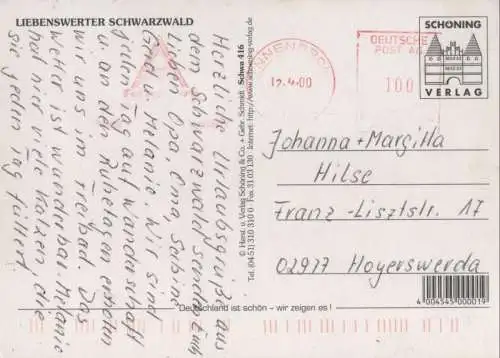 LIEBENSWERTER SCHWARZWALD
Herzliche Urlaubsgrüße aus
dem Schwarzwald sendet Euch
Lieben Opa, Oma, Sabine
Gerd u. Melanie. Wir sind
jeden Tag auf Wanderschaft
u. an den Ruhetagen erholen
wir uns im Freibad. Das
Wetter ist wunderbar. Melanie
hat hier viele Katzen, die
sie jeden Tag füttert.
© Horst u. Verlag Schöning & Co. + Gebr. Schmidt Schwa 416
Tel. (04 51) 310 310 Fax 31 03 130 Internet: http://www.schoening-verlag.de
12.4.00
DEUTSCHE
POST AG
100
SCHÖNING
VERLAG
Johanna + Margitta
Hilse
Franz-Lisztstr. 17
02977 Hoyerswerda
4 004545 000019
Deutschland ist schön – wir zeigen es !